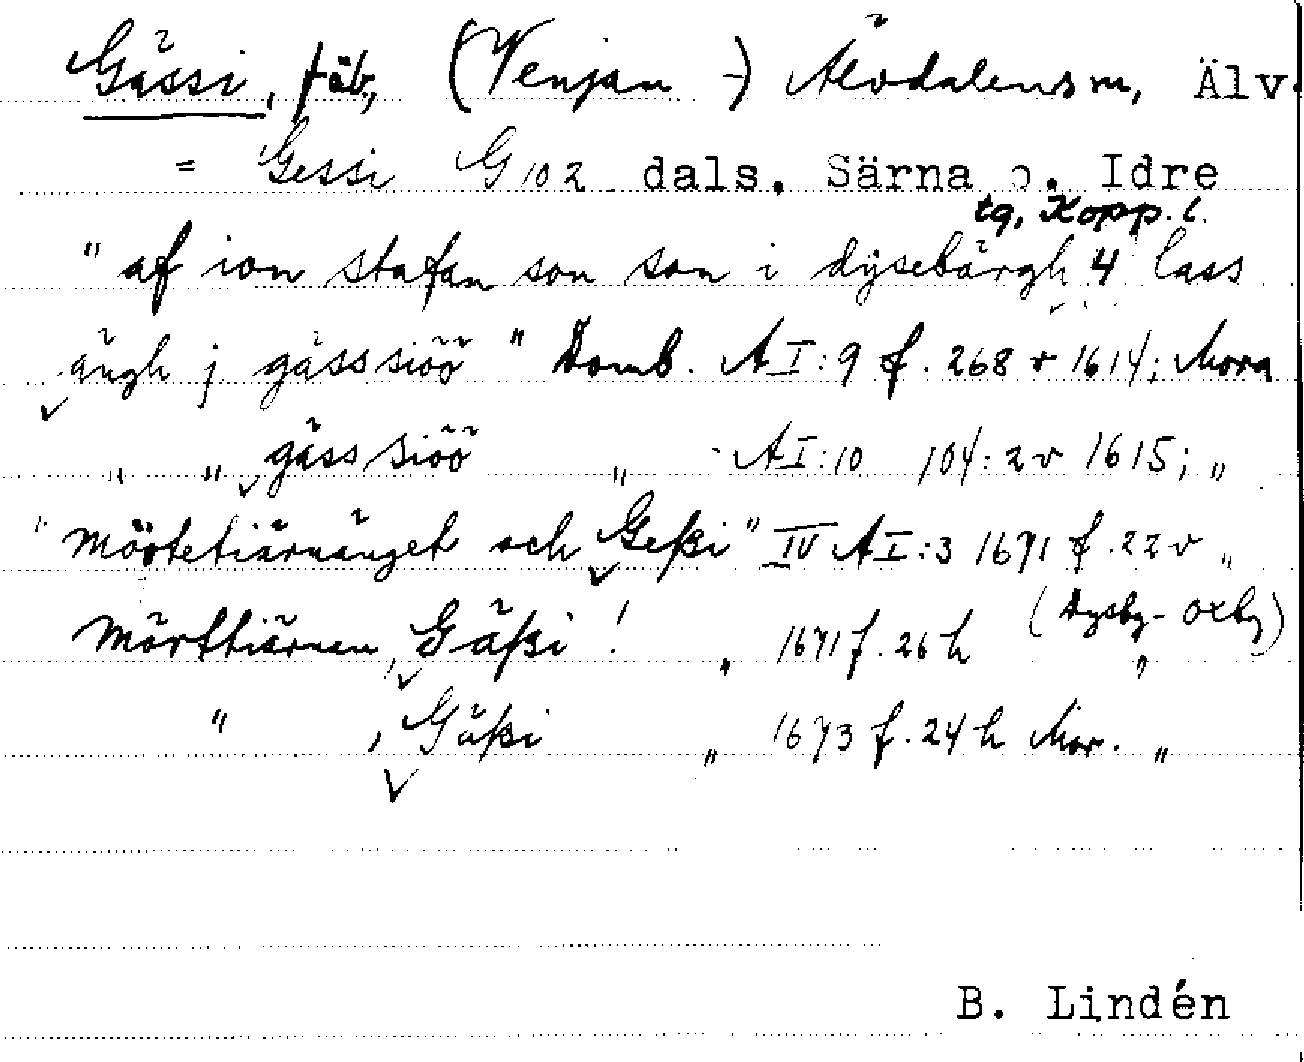 Gässi, fäb., (Venjan -) Älvdalens sn, Älv-
= Gessi G 102 dals, Särna o. Idre
tg, Kopp. l.
" af ion stafan son son i dysebärgh 4 lass
ängh j gässsiöö " Domb. A I:9 f. 268 v 1614; Mora
" " gässsiöö " A I:10 104:2v 1615; "
" mörtetiärnänget och Geßi" IV A I:3 1671 f. 22v "
mörttiärnen, Gäßi! " 1671 f. 26 h (Dysby-Oxby) "
" , Gäßi " 1673 f. 24 h Mor. "
B. Lindén